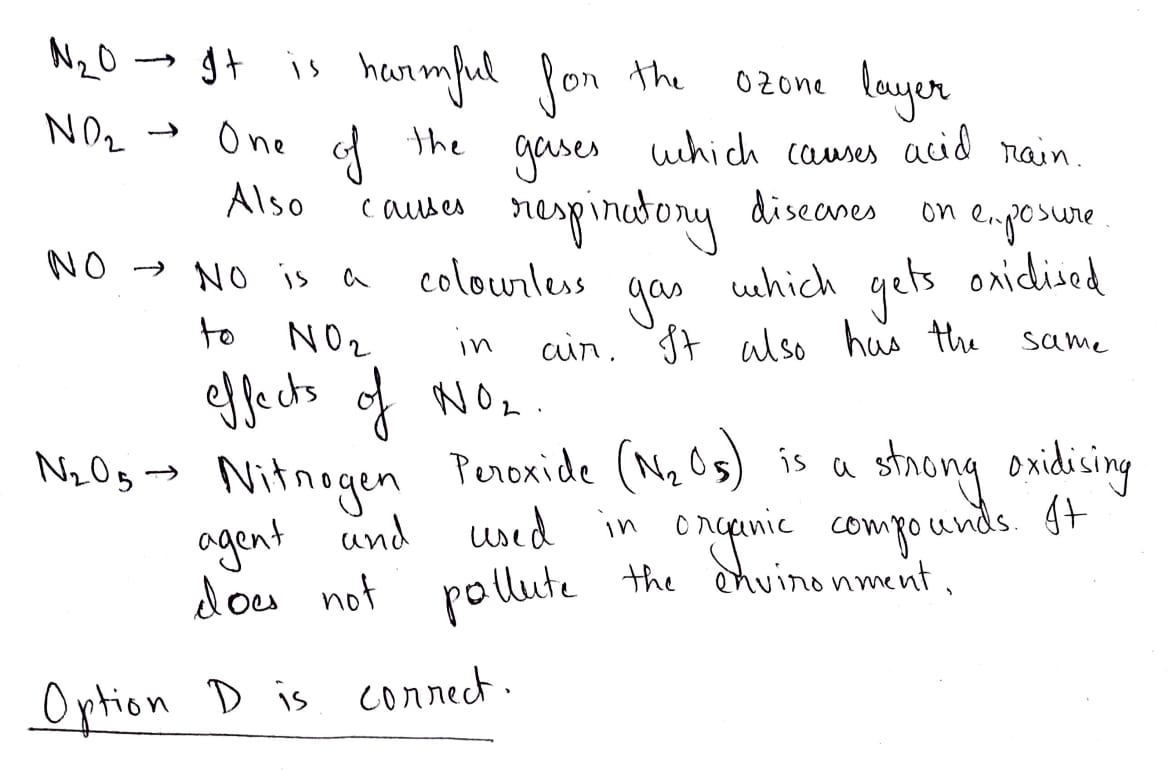 N₂O → It is harmful for the ozone layer
NO₂ → One of the gases which causes acid rain.
Also causes respiratory diseases on exposure.
NO → NO is a colourless gas which gets oxidised
to NO₂ in air. It also has the same
effects of NO₂.
N₂O₅ → Nitrogen Peroxide (N₂O₅) is a strong oxidising
agent and used in organic compounds. It
does not pollute the environment.
Option D is correct.